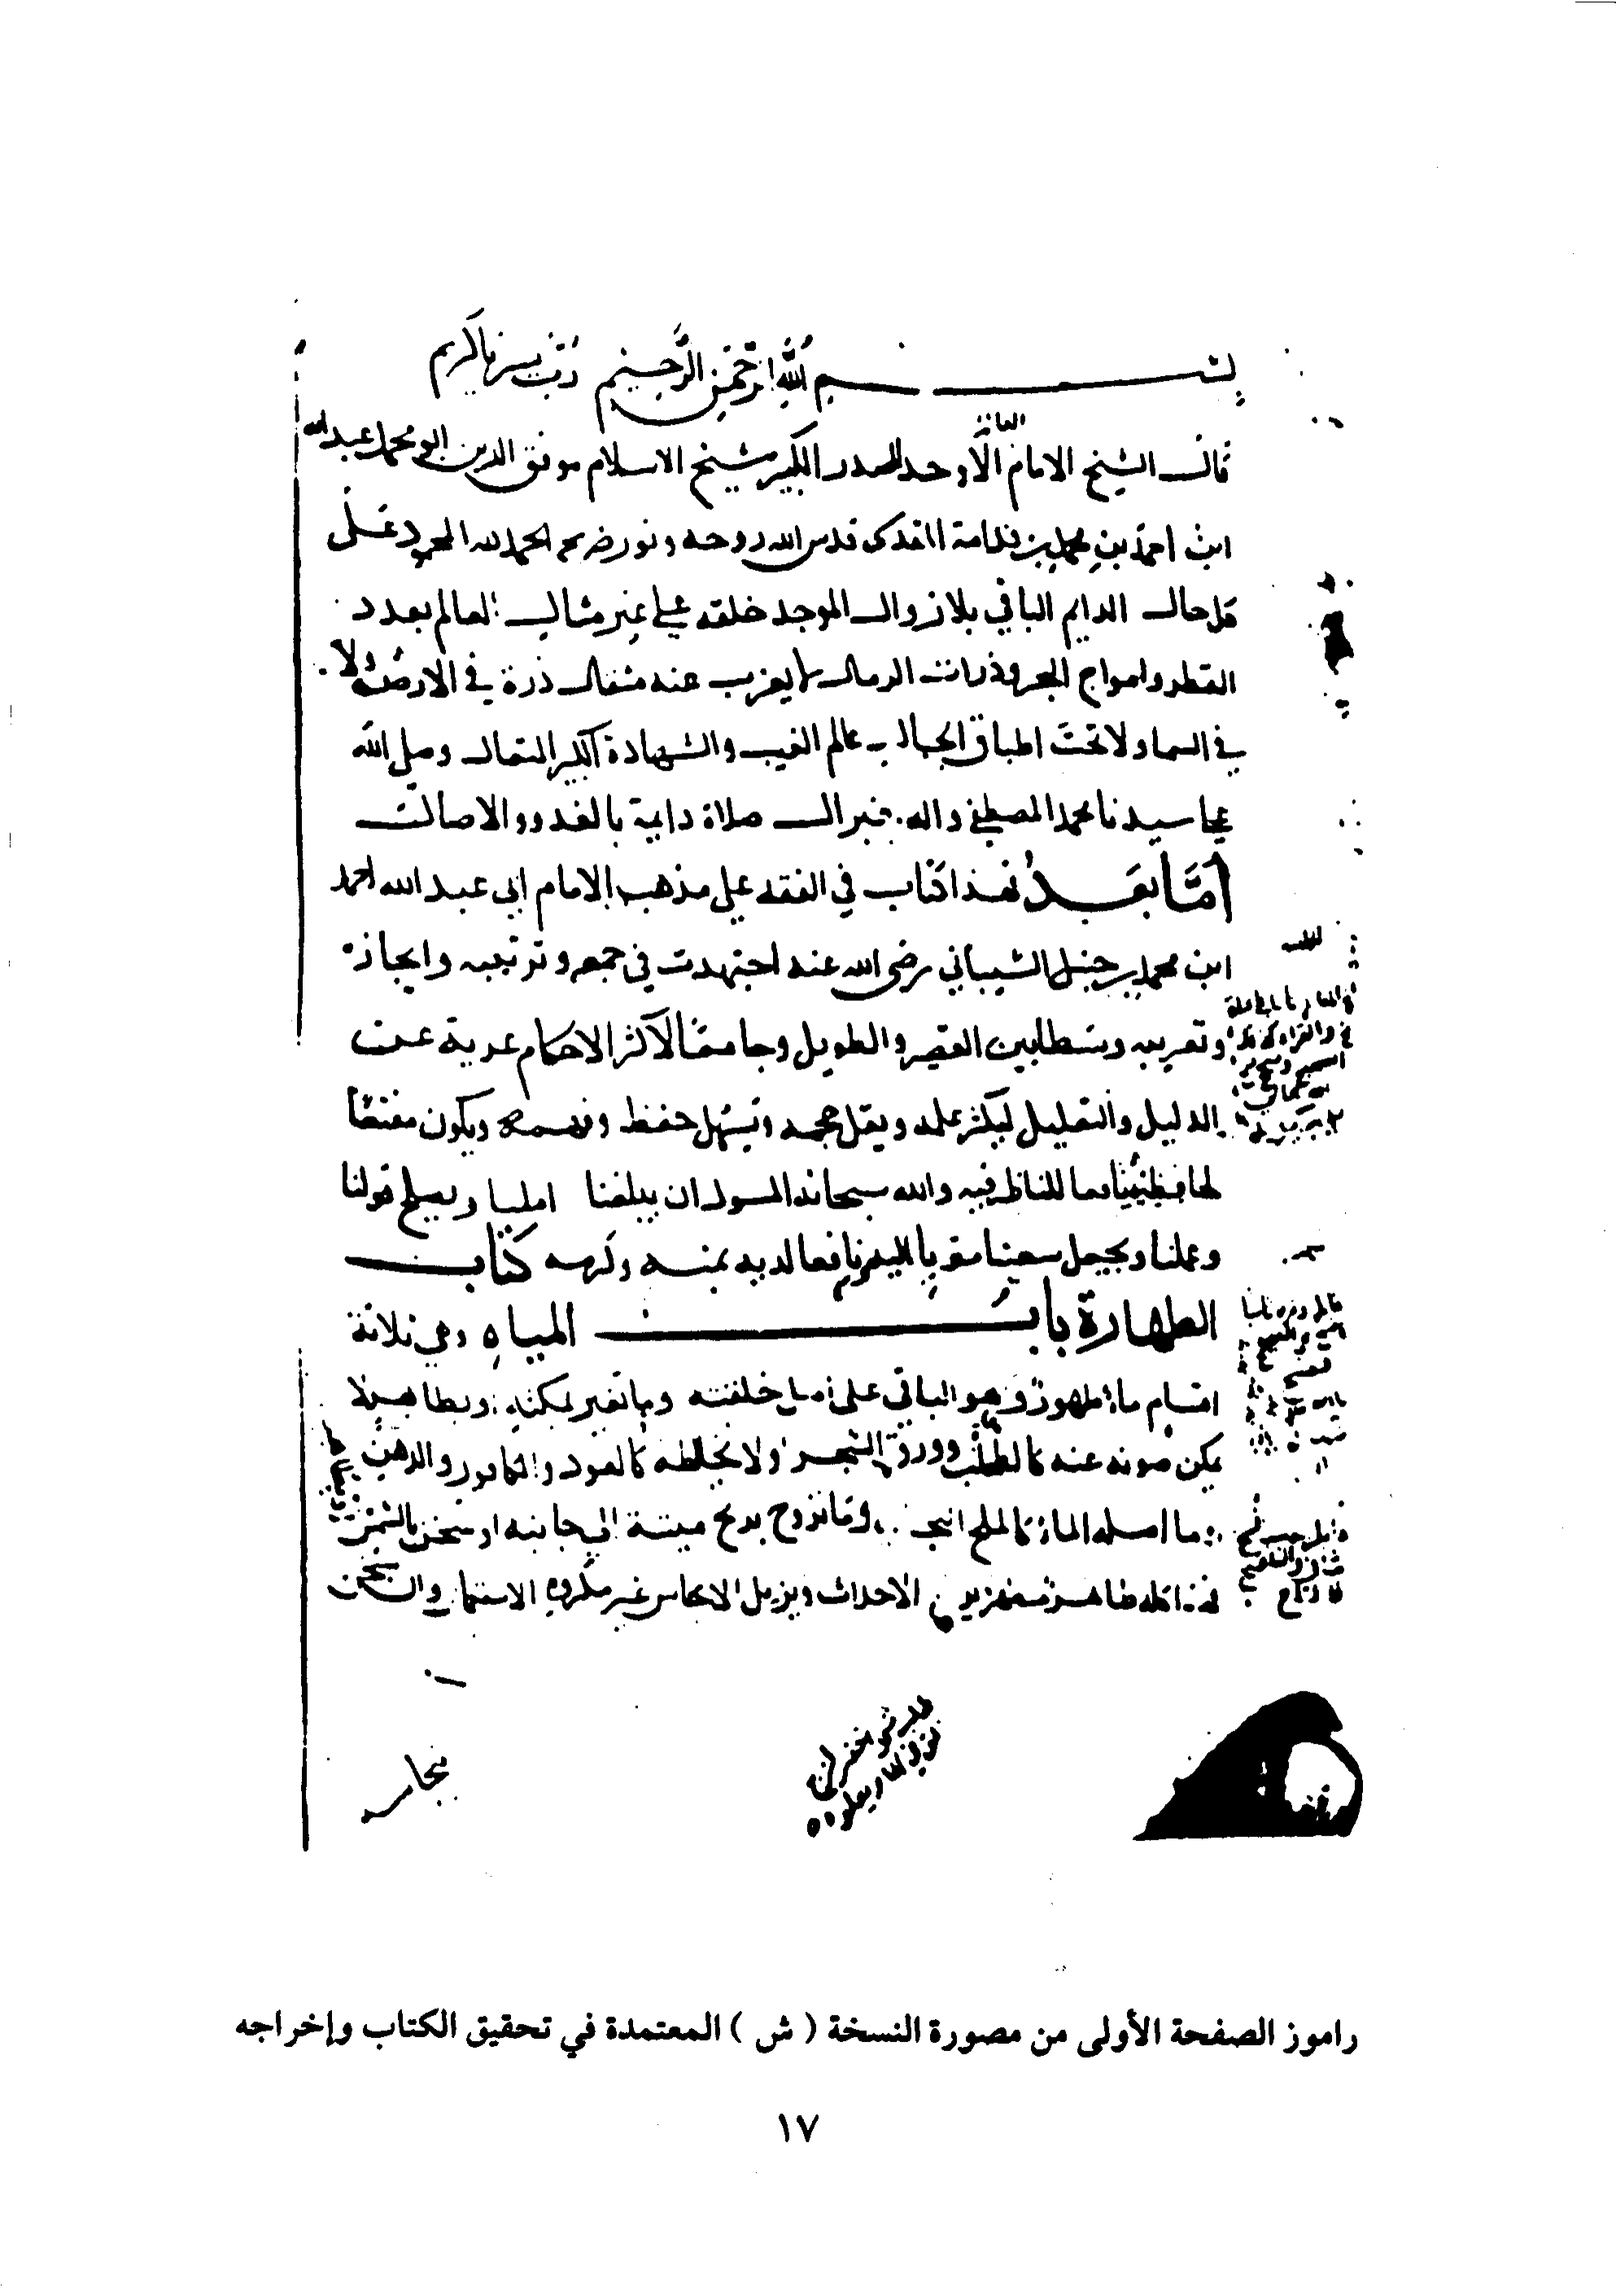 بسم الله الرحمن الرحيم رب يسر يا كريم
العالم
قال الشيخ الامام الأوحد الصدر الكبير شيخ الاسلام موفق الدين ابو محمد عبد الله
ابن احمد بن محمد بن قدامة المقدسي قدس الله روحه ونور ضريحه الحمد لله المحمود على
كل حال الدايم الباقي بلا زوال الموجد خلقه على غير مثال العالم بعدد
القطر وامواج البحر وذرات الرمال لا يعزب عنه مثقال ذرة في الارض ولا
في السما ولا تحت اطباق الجبال عالم الغيب والشهادة الكبير المتعال وصلى الله
على سيدنا محمد المصطفى واله خير ال صلاة دايمة بالغدو والاصال
أمَّا بعدُ فهذا كتاب في الفقه على مذهب الامام ابي عبد الله احمد
ابن محمد بن حنبل الشيباني رضى الله عنه اجتهدت في جمعه وترتيبه وايجازه
وتقريبه وسطا بين القصير والطويل وجامعًا لاكثر الاحكام عرية عن
الدليل والتعليل ليكثر علمه ويقل حجمه ويسهل حفظه وفهمه ويكون مقنعًا
لحافظيه نافعا للناظر فيه والله سبحانه المسول ان يبلغنا املنا ويصلح قولنا
وعملنا ويجعل سعينا مقربا اليه ونافعا لديه بمنه وكرمه كتاب
الطهارة باب المياه وهي ثلاثة
اقسام ماء طهور وهو الباقي على اصل خلقته وما تغير بمكثه او بطاهر لا
يمكن صونه عنه كالطحلب وورق الشجر او لا يخالطه كالعود والكافور والدهن
او ما اصله الماء كالملح البحري او ما تروح بريح ميتة الى جانبه او سخن بالشمس
فهذا كله طاهر مطهر يرفع الاحداث ويزيل الانجاس غير مكروه الاستعمال وان سخن
بنجاسة
راموز الصفحة الأولى من مصورة النسخة ( ش ) المعتمدة في تحقيق الكتاب وإخراجه
١٧